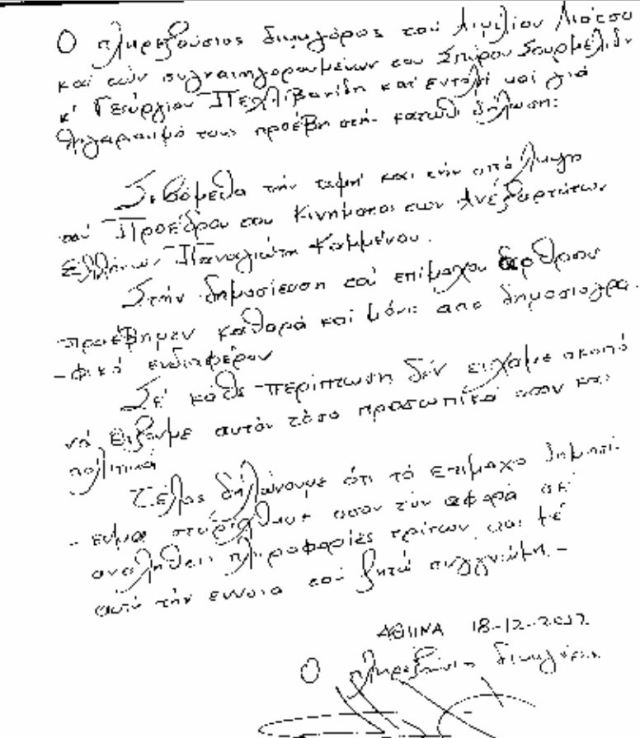 Ο πληρεξούσιος δικηγόρος του Αιμίλιου Λιάτσου
και των συγκατηγορουμένων του Σπύρου Σουρμελίδη
κ' Γεώργιου Πεχλιβανίδη κατ' εντολή και για
λογαριασμό τους προέβη στην κατωθι δήλωση:
Σεβόμεθα την τιμή και την υπόληψη
του Προέδρου του Κινήματος των Ανεξαρτήτων
Ελλήνων Παναγιώτη Καμμένου.
Στην δημοσίευση του επίμαχου άρθρου
προέβημεν καθαρά και μόνο από δημοσιογρα-
-φικό ενδιαφέρον
Σε κάθε περίπτωση δεν είχαμε σκοπό
να θίξουμε αυτόν τόσο προσωπικά οσον και
πολιτικά
Τέλος δηλώνουμε ότι το επίμαχο δημοσί-
-ευμα στηρίχθηκε οσον τον αφορά σε
αναληθείς πληροφορίες τρίτων και με
αυτή την εννοια του ζητώ συγγνώμη. -
ΑΘΗΝΑ 18-12-2012
Ο πληρεξούσιος δικηγόρος